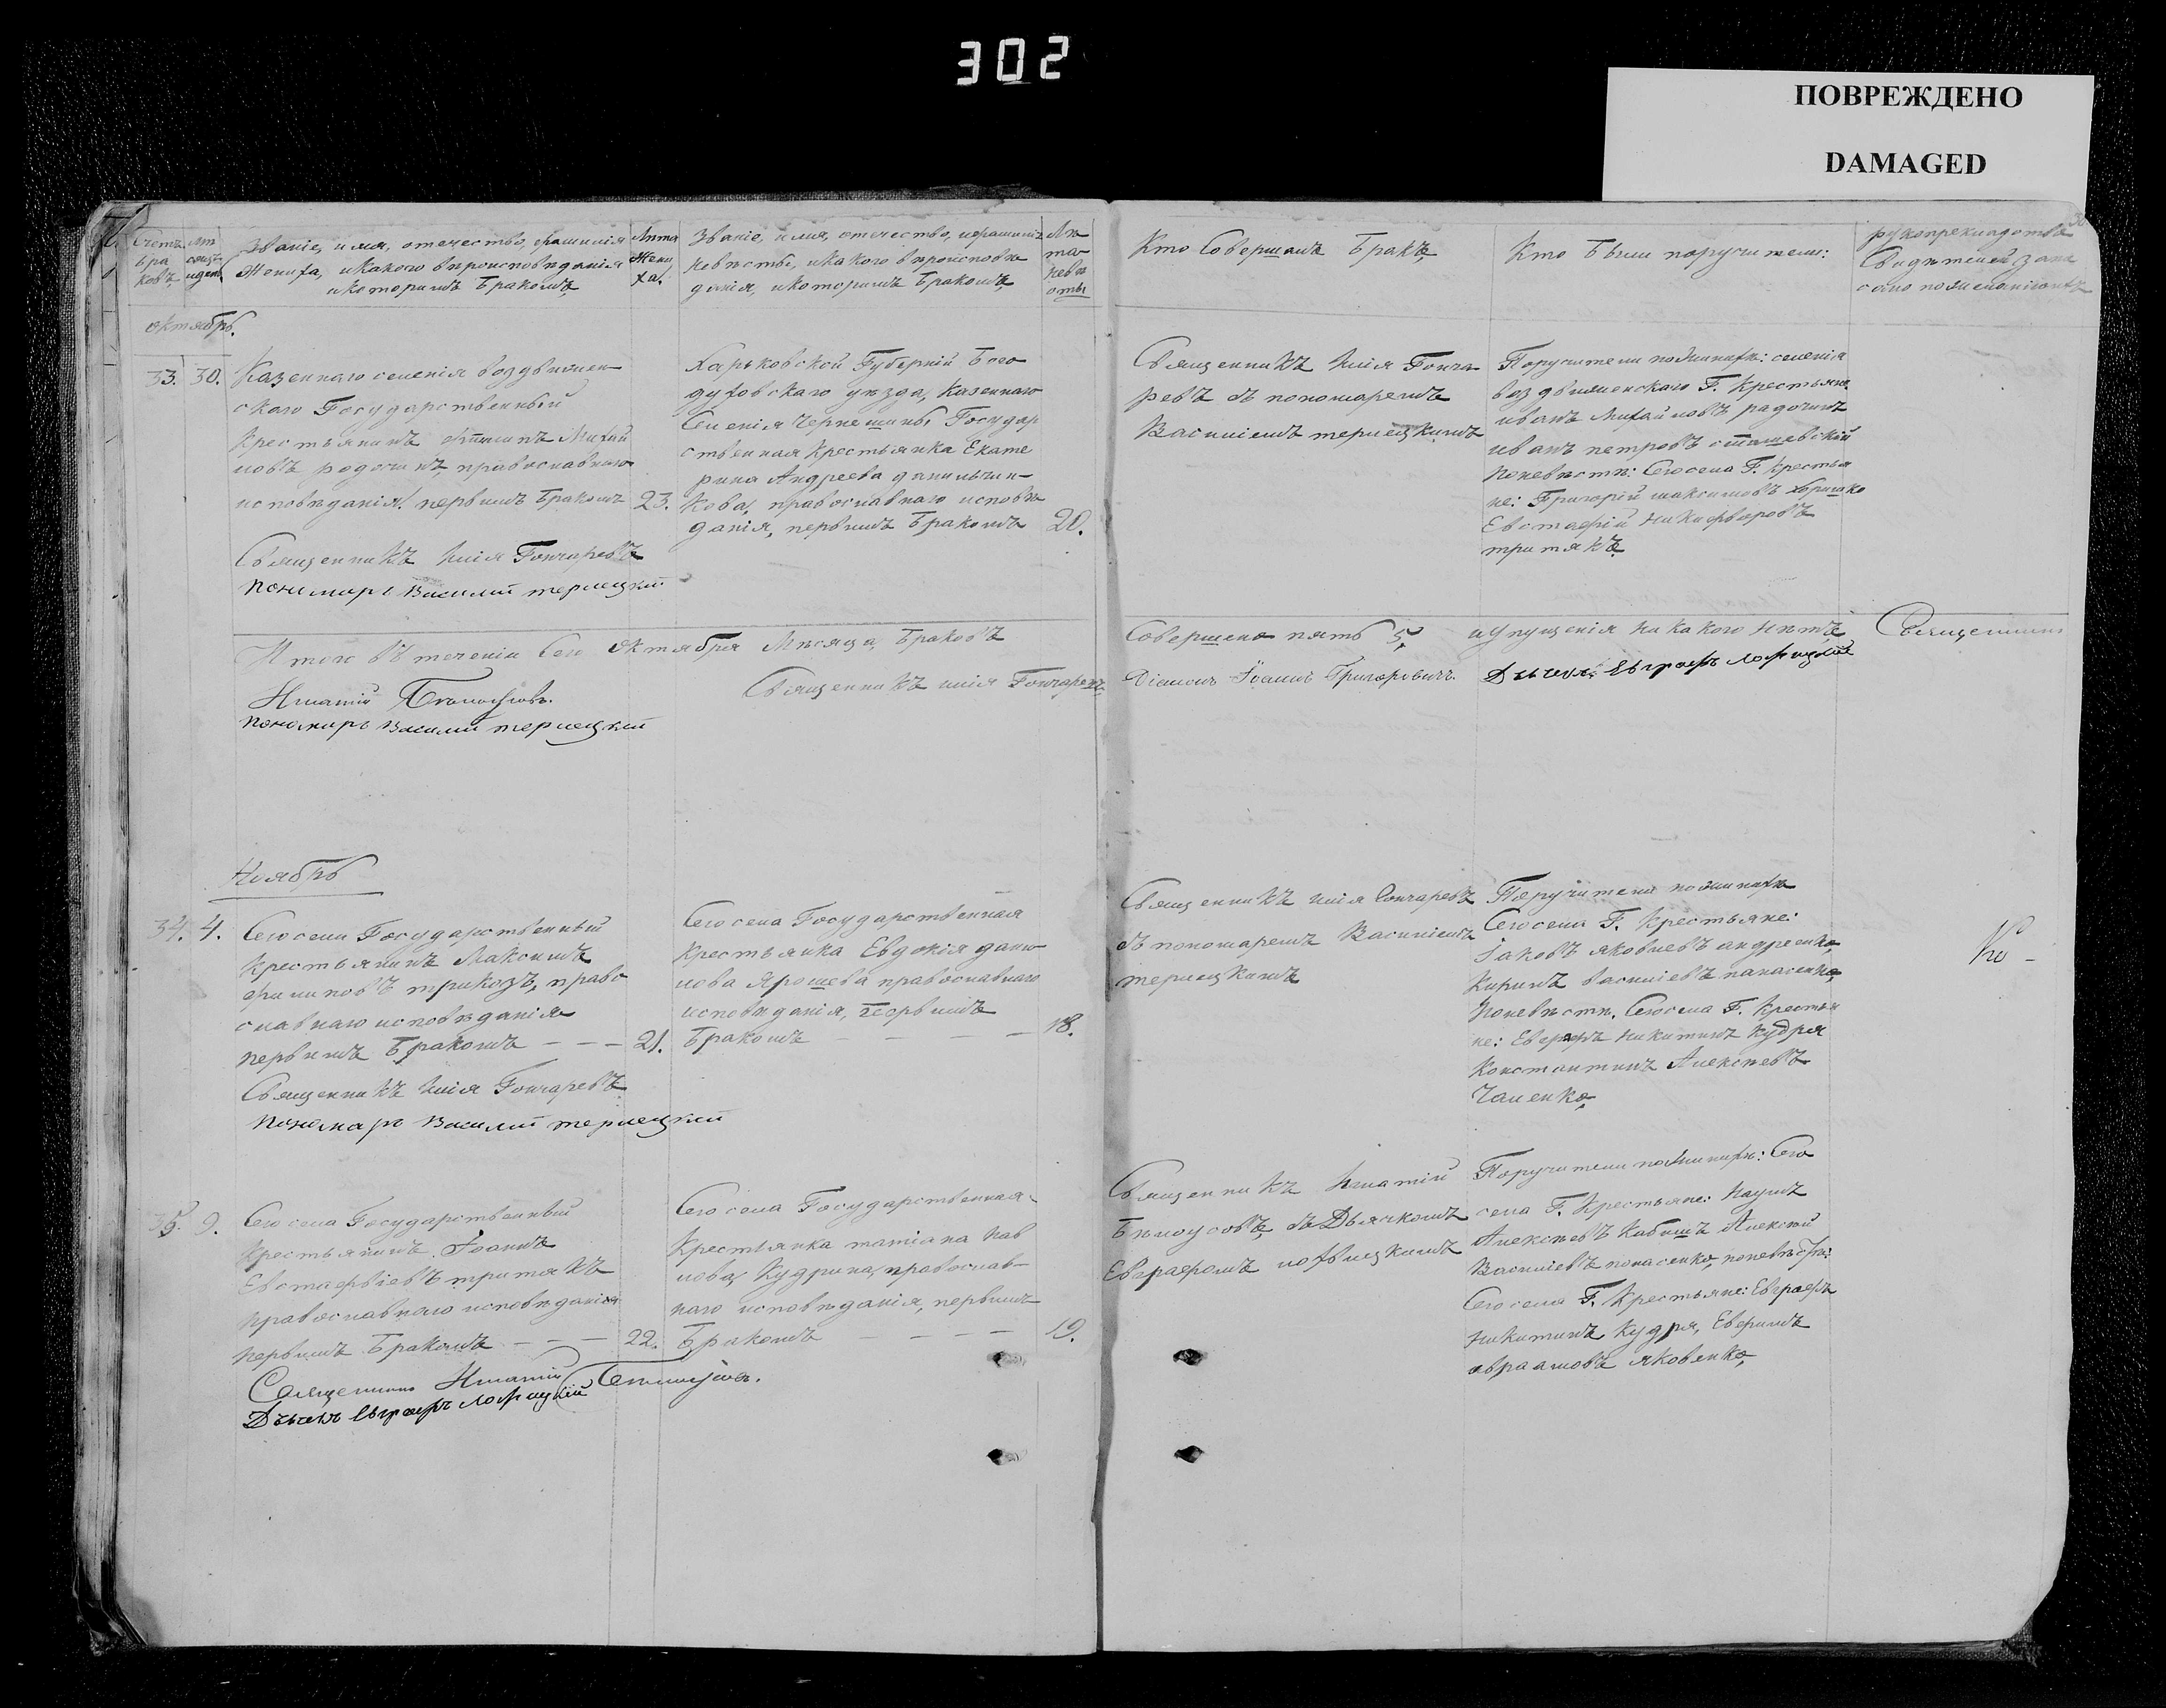 302
ПОВРЕЖДЕНО
DAMAGED
Счетъ бра ковъ
Званіе, имя, отечество, фамилія
Жениха, и какого вѣроисповѣданія
и которымъ Бракомъ
Лѣта Жени ха.
Званіе, имя, отечество, и фамилія
невѣсты, и какого вѣроисповѣ
данія, и которымъ Бракомъ,
Лѣ та невѣ сты
Кто Совершалъ Бракъ,
Кто Были поручители:
Свидѣтелей запи
Октябрь.
33. 30.
Казеннаго селенія воздвижен
скаго Государственный
Крестьянинъ Михай
ловъ радочинъ, православнаго
исповѣданія, первымъ Бракомъ 23.
Священникъ Илія Гончаревъ
Пономарь Василій терлецкій
Харьковской Губерній Бого
духовскаго уѣзда, Казеннаго
Селенія Чернещины Государ
ственная Крестьянка Екате
рина Андреева данильчин
кова, православнаго исповѣ
данія, первымъ Бракомъ 20.
Священникъ Илія Гонча
ревъ съ пономаремъ
Василіемъ терлецкимъ
Поручители по Женихѣ: селенія
воздвиженскаго Г. Крестьяне
иванъ Михайловъ радочинъ
иванъ петровъ сташевскій
Поневѣстѣ: Сего села Г. Крестья
не: Григорій максимовъ
Евстафій Никифоровъ
тритякъ
Итого въ теченіи Сего Октября Мѣсяца, Браковъ
Совершено пять 5,
и упущенія никакого нѣтъ
Священникъ
Игнатій Бѣлоусовъ.
Священникъ илія Гончаревъ
Діаконъ Іоаннъ Григоровичъ.
Дьячекъ Евграфъ
Пономарь Василій терлецкій
Ноябрь
34. 4.
Сего села Государственный
Крестьянинъ Максимъ
филиповъ трикозъ, право
славнаго исповѣданія
первымъ Бракомъ - - - 21.
Священникъ Илія Гончаревъ
Пономарь Василій терлецкій
Сего села Государственная
Крестьянка Евдокія дани
лова Ярошева православнаго
исповѣданія, первымъ
Бракомъ - - - - 18.
Священникъ илія Гончаревъ
съ пономаремъ Василіемъ
терлецкимъ
Поручители по Женихѣ
Сего села Г. Крестьяне:
Іаковъ яковлевъ андреенко,
Кирилъ василіевъ панасенко,
Поневѣстѣ. Сего села Г. Крестья
не: Евграфъ никитинъ Кудря
Константинъ Алексѣевъ
Чаленко,
35. 9.
Сего села Государственный
Крестьянинъ Іоаннъ
Евстафіевъ тритякъ
православнаго исповѣданія
первымъ Бракомъ - - - 22.
Священникъ Игнатій Бѣлоусовъ.
Дьячекъ Евграфъ
Сего села Государственная
Крестьянка татіана пав
лова, Кудрина, православ
наго исповѣданія, первымъ
Бракомъ - - - - 19.
Священникъ Игнатій
Бѣлоусовъ, съ Дьячкомъ
Евграфомъ
Поручители по Женихѣ: Сего
села Г. Крестьяне: Наумъ
Алексѣевъ Кабышъ Алексѣй
Василіевъ понасенко, поневѣстѣ:
Сего села Г. Крестьяне: Евграфъ
никитинъ Кудря,
авраамовъ яковенко,